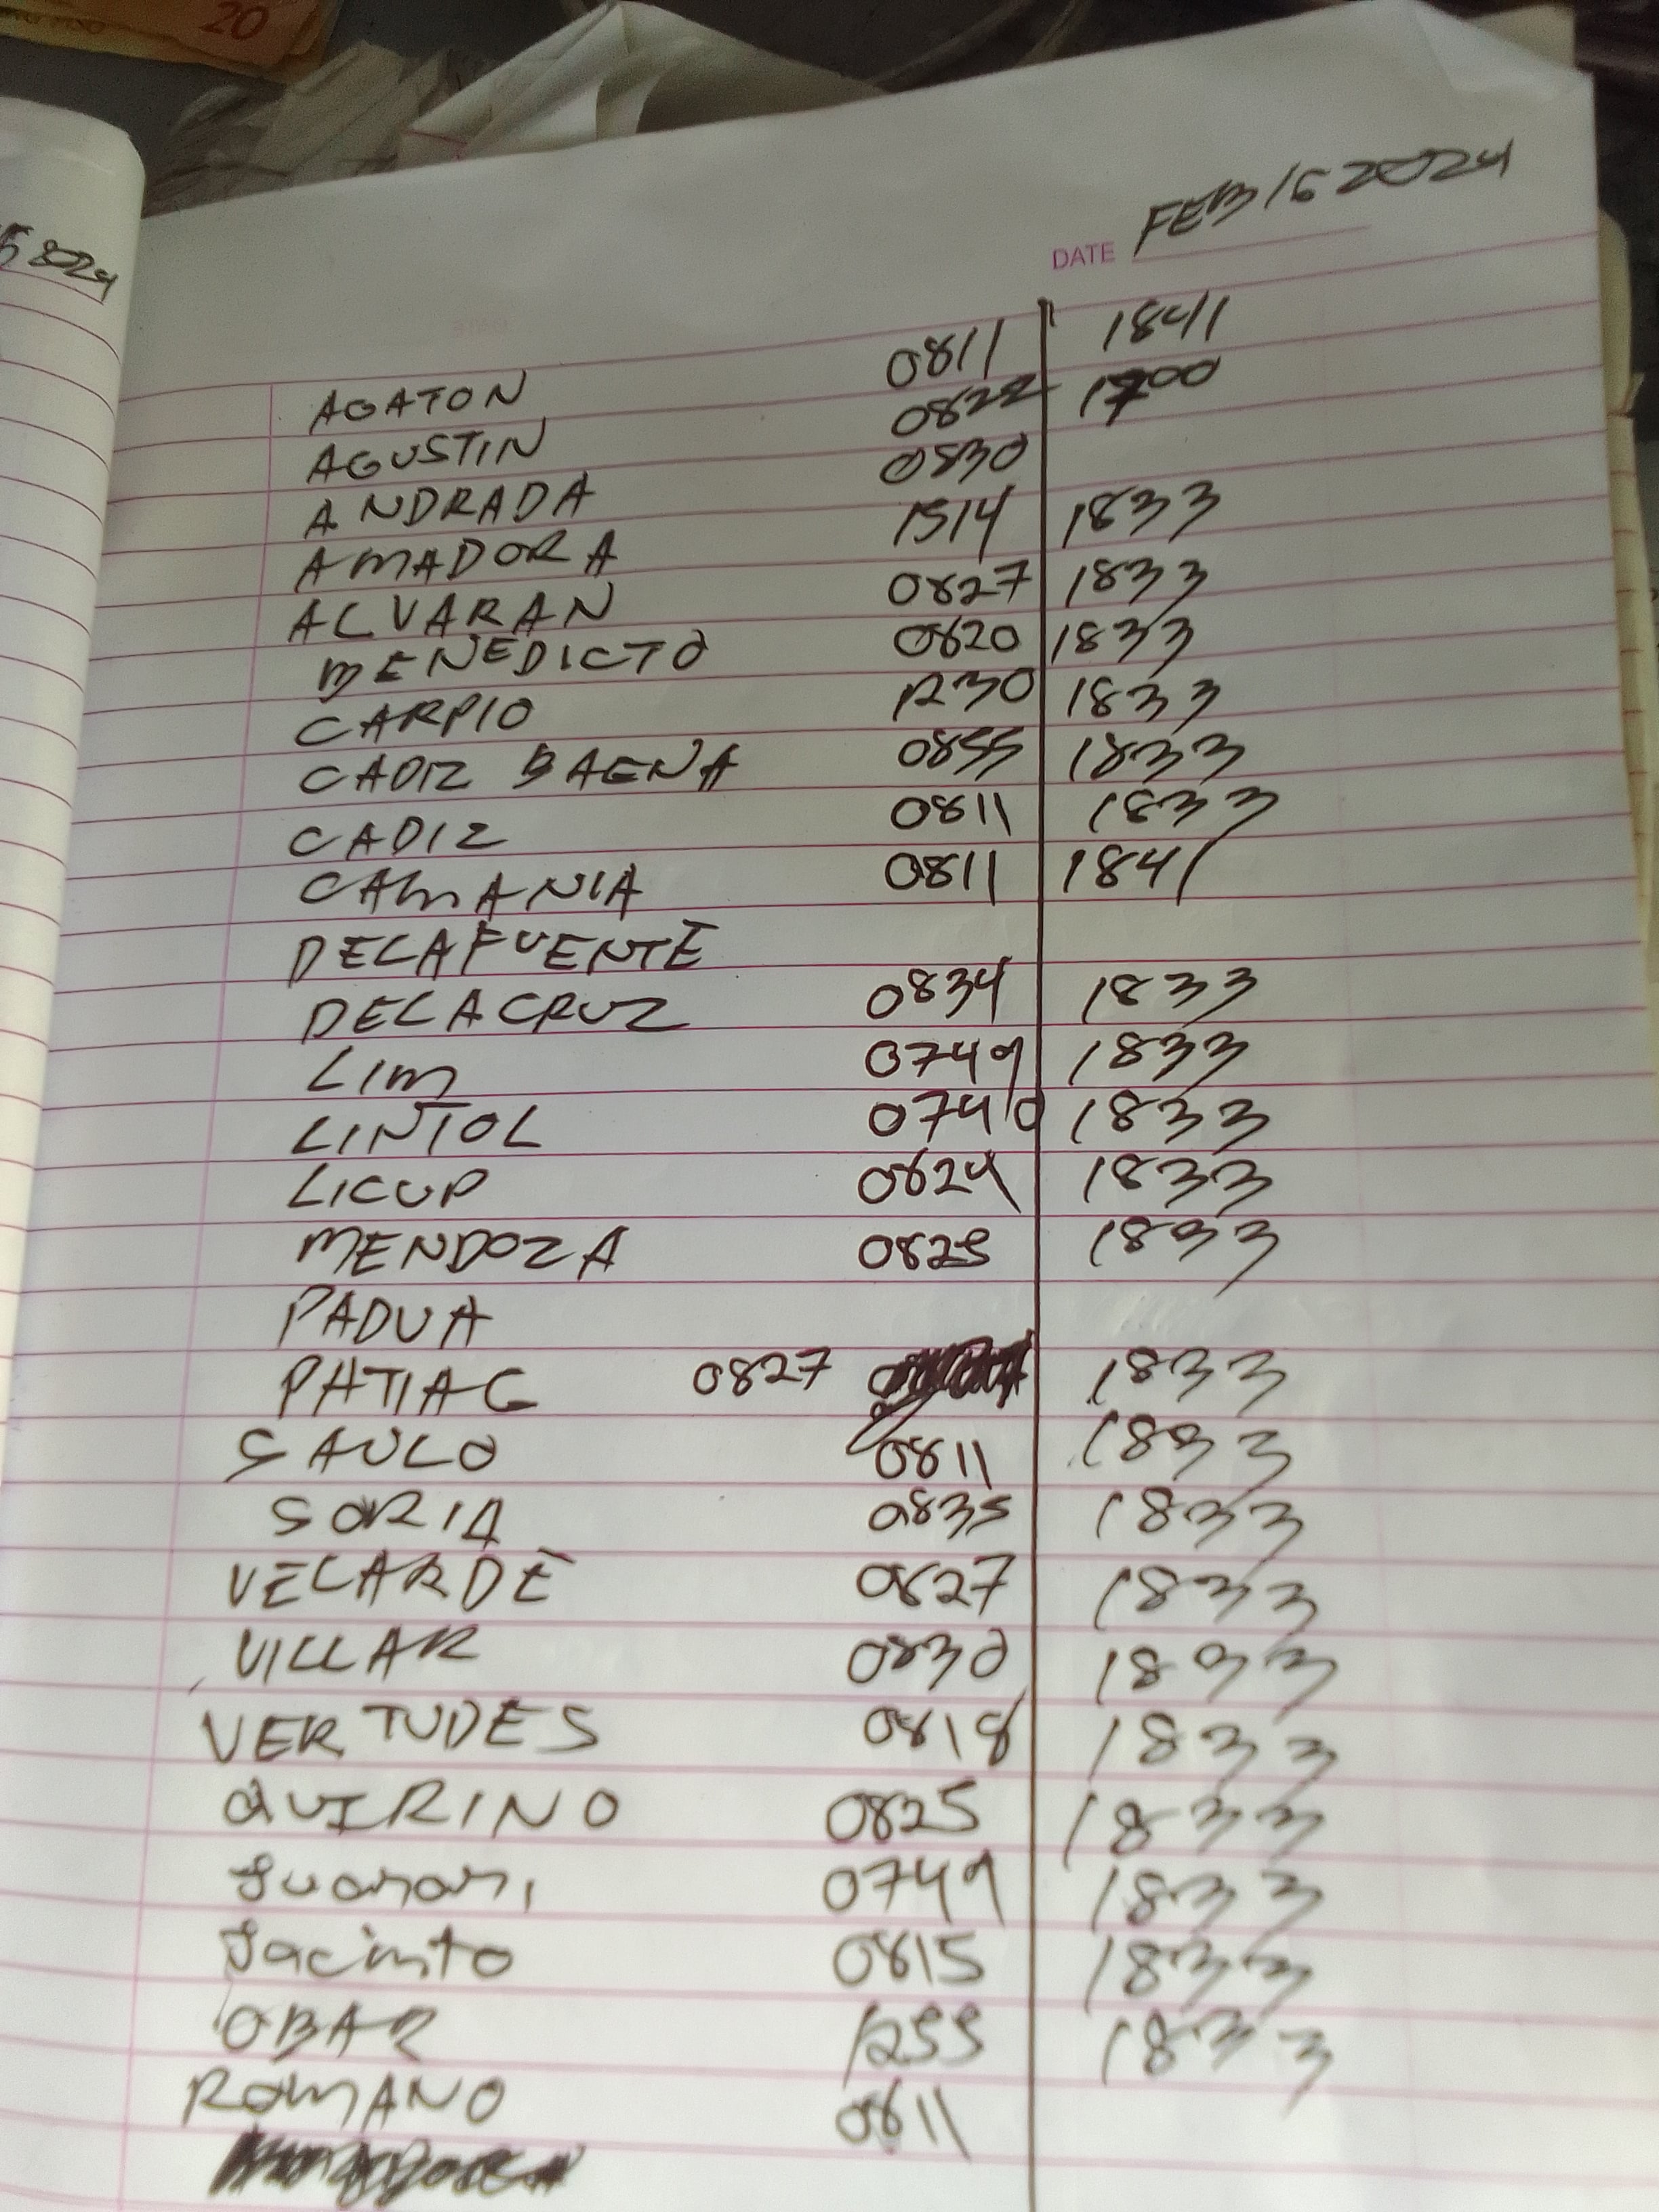 20
5 2024
DATE FEB 15 2024
AGATON 0811 1841
AGUSTIN 0822 1700
ANDRADA 0830
AMADORA 1514 1833
ALVARAN 0827 1833
BENEDICTO 0820 1833
CARPIO 1230 1833
CADIZ BAENA 0855 1833
CADIZ 0811 1833
CAMANIA 0811 1841
DELAFUENTE
DELACRUZ 0834 1833
LIM 0749 1833
LINTOL 0740 1833
LICUP 0624 1833
MENDOZA 0825 1833
PADUA
PATIAG 0827 1833
SAULO 0811 1833
SORIA 0835 1833
VELARDE 0827 1833
VILLAR 0830 1833
VERTUDES 0818 1833
QUIRINO 0825 1833
0749 1833
Jacinto 0815 1833
OBAR 1255 1833
ROMANO 0811